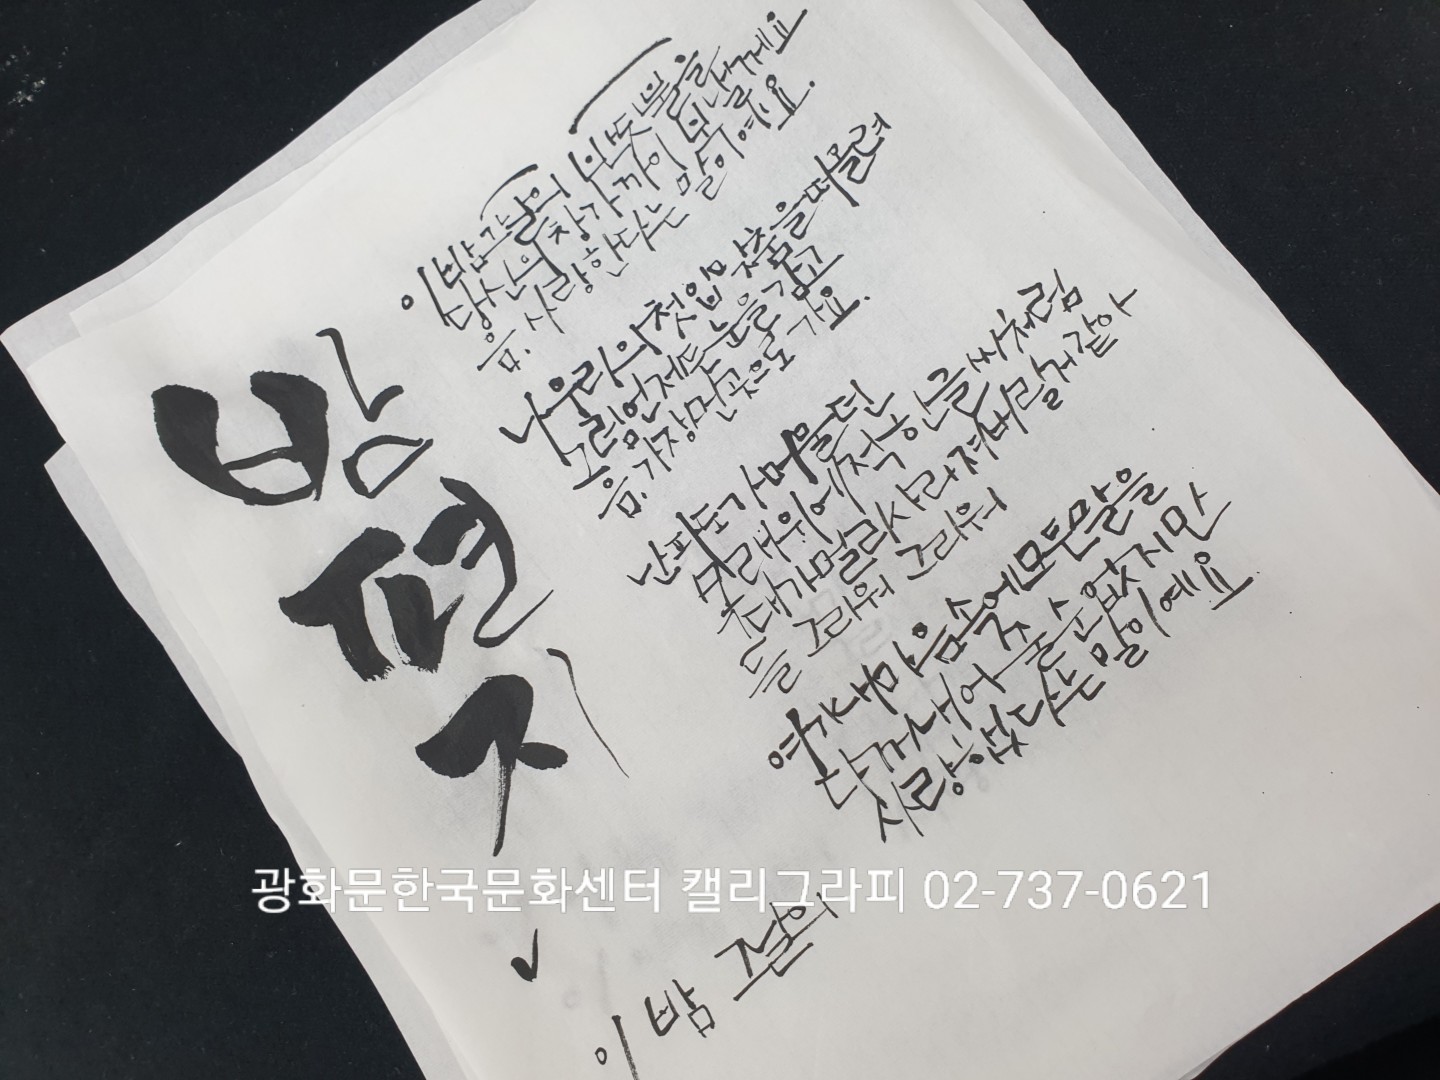 밤
편
지
이 밤 그날의 반딧불을
당신의 창가 가까이 보낼게요
음. 사랑한다는 말이예요.
나 우리의 첫 입맞춤을 떠올려
그럼 언제든 눈을 감고
음. 가장 먼 곳으로 가요.
난 파도가 머물던
모래 위에 적힌 글씨처럼
그대가 멀리 사라져 버릴 것 같아
늘 그리워 그리워
여기 내 마음 속에 모든 말을
다 꺼내어 줄 순 없지만
사랑한다는 말이예요
광화문한국문화센터 캘리그라피 02-737-0621
이 밤 그날의